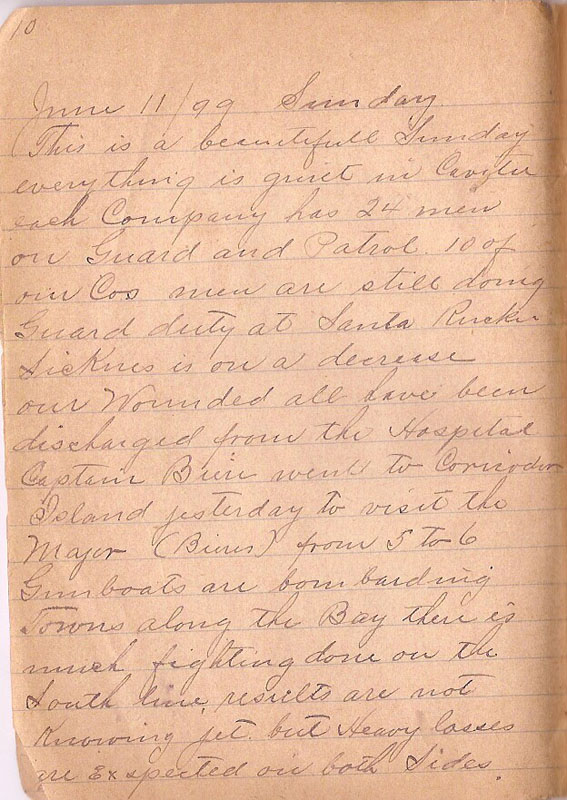 10
June 11/99 Sunday
This is a beautifull Sunday
everything is quiet in Cavite
each Company has 24 men
on Guard and Patrol. 10 of
our Cos men are still doing
Guard duty at Santa
Sicknes is on a decrease
our Wounded all have been
discharged from the Hospital
Captain went to
Island yesterday to visit the
Major from 5 to 6
Gunboats are bombarding
Towns along the Bay there is
much fighting done on the
South line, results are not
Knowing jet. but Heavy losses
are Expected on both Sides.